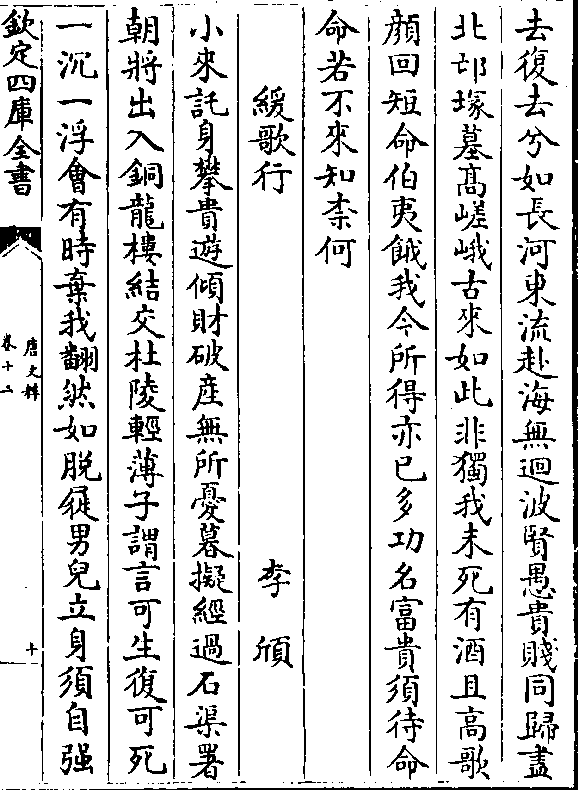 去復去兮如長河東流赴海無迴波賢愚貴賤同歸盡
北邙塚墓髙嵯峨古來如此非獨我未死有酒且高歌
顔回短命伯夷餓我今所得亦已多功名富貴須待命
命若不來知柰何
緩歌行 李頎
小來託身攀貴遊傾財破産無所憂暮擬經過石渠署
朝將出入銅龍樓結交杜陵輕薄子謂言可生復可死
一沉一浮會有時棄我翻然如脱屣男兒立身須自强
欽定四庫全書
唐文粹
卷十二
十